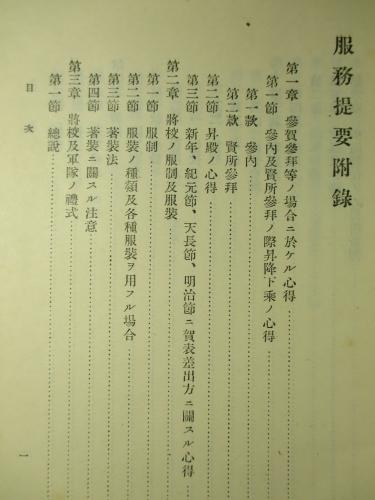 服務提要附錄
第一章 參賀參拜等ノ場合ニ於ケル心得
第一節 參內及賢所參拜ノ際昇降下乘ノ心得
第一款 參內
第二款 賢所參拜
第二節 昇殿ノ心得
第三節 新年、紀元節、天長節、明治節ニ賀表差出方ニ關スル心得
第二章 將校ノ服制及服裝
第一節 服制
第二節 服裝ノ種類及各種服裝ヲ用フル場合
第三節 著裝法
第四節 著裝ニ關スル注意
第三章 將校及軍隊ノ禮式
第一節 總說
目次
一